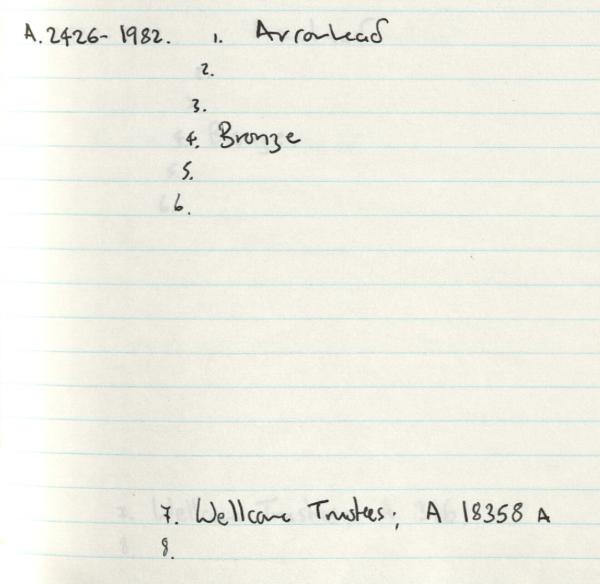 A.2426-1982. 1. Arrowhead
2.
3.
4. Bronze
5.
6.
7. Wellcome Trustees; A 18358 A
8.